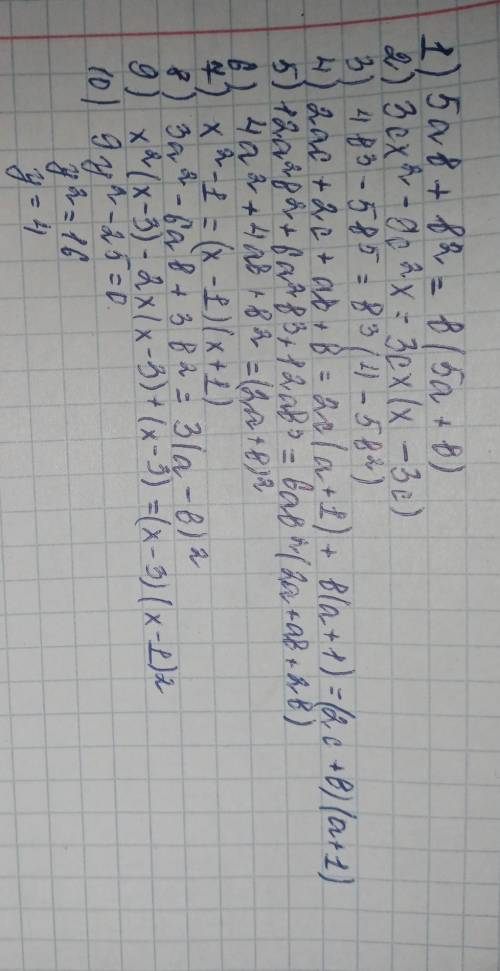 1) 5ab + b² = b(5a + b)
2) 3cx² - 9c²x = 3cx(x - 3c)
3) 4b³ - 5b⁵ = b³(4 - 5b²)
4) 2ac + 2c + ab + b = 2c(a + 1) + b(a + 1) = (2c + b)(a + 1)
5) 12a²b² + 6a²b³ + 12ab³ = 6ab²(2a + ab + 2b)
6) 4a² + 4ab + b² = (2a + b)²
7) x² - 1 = (x - 1)(x + 1)
8) 3a² - 6ab + 3b² = 3(a - b)²
9) x²(x - 3) - 2x(x - 3) + (x - 3) = (x - 3)(x - 1)²
10) 9y² - 25 = 0
y² = 16
y = 4